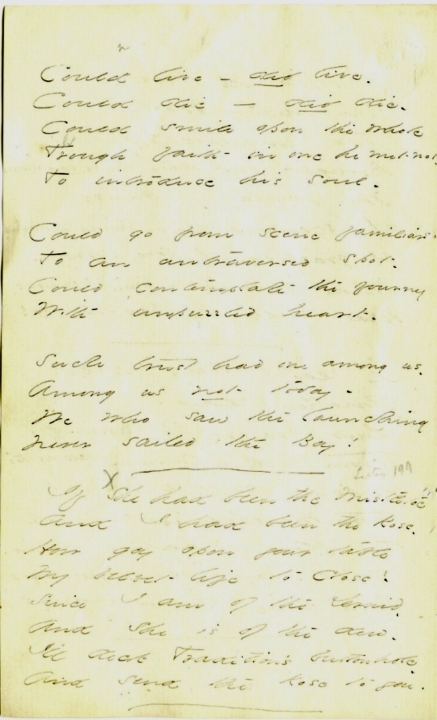 Could live - did live.
Could die - did die.
Could smile upon the whole
Through faith in one he met not
To introduce his soul.
Could go from scene familiar
To an untraversed spot.
Could contemplate the journey
With unpuzzled heart.
Such trust had one among us.
Among us not today -
We who saw the launching
Never sailed the Bay!
If she had been the Mistletoe
And I had been the Rose.
How gay upon your table
My velvet life to close!
Since I am of the Druid
And she is of the dew.
I'll deck Tradition's buttonhole
And send the Rose to you.